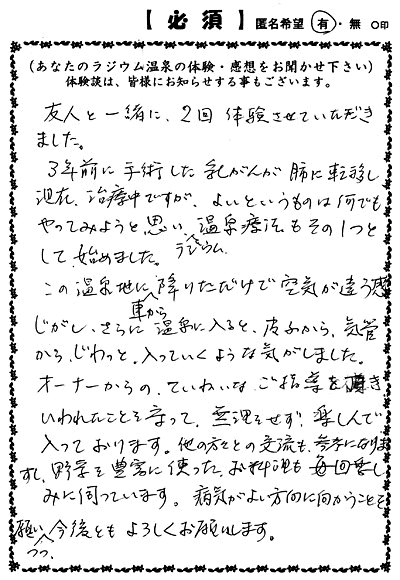 【必須】 匿名希望 有・無 ○印
(あなたのラジウム温泉の体験・感想をお聞かせ下さい)
体験談は、皆様にお知らせする事もございます。
友人と一緒に、2回 体験させていただき
ました。
3年前に手術した乳がんが肺に転移し
現在、治療中ですが、よいというものは何でも
やってみようと思い、温泉療法もその1つと
ラジウム
して始めました。
この温泉地に降りただけで空気が違う感
車から
じがし、さらに温泉に入ると、皮ふから、気管
から、じわっと、入っていくような気がしました。
オーナーからの、ていねいなご指導を頂き
いわれたことを守って、無理をせず、楽しんで
入っております。他の方々との交流も、参考になりま
すし、野菜を豊富に使ったお料理も毎回楽し
みに伺っています。病気がよい方向に向かうことを
願い、今後ともよろしくお願いします。
つつ、